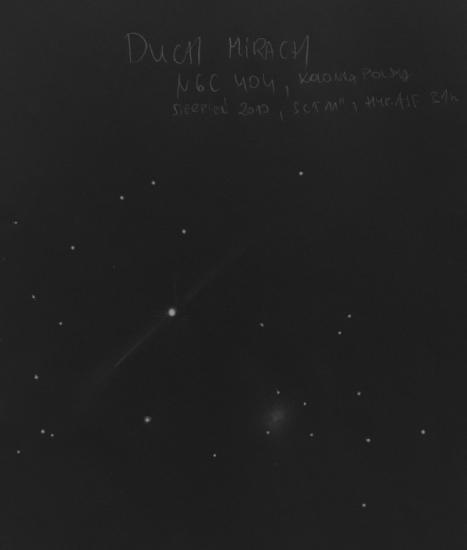 DUCH MIRACH
NGC 404, KOLONIA POLSKA
SIERPIEŃ 2010, SCT 11",